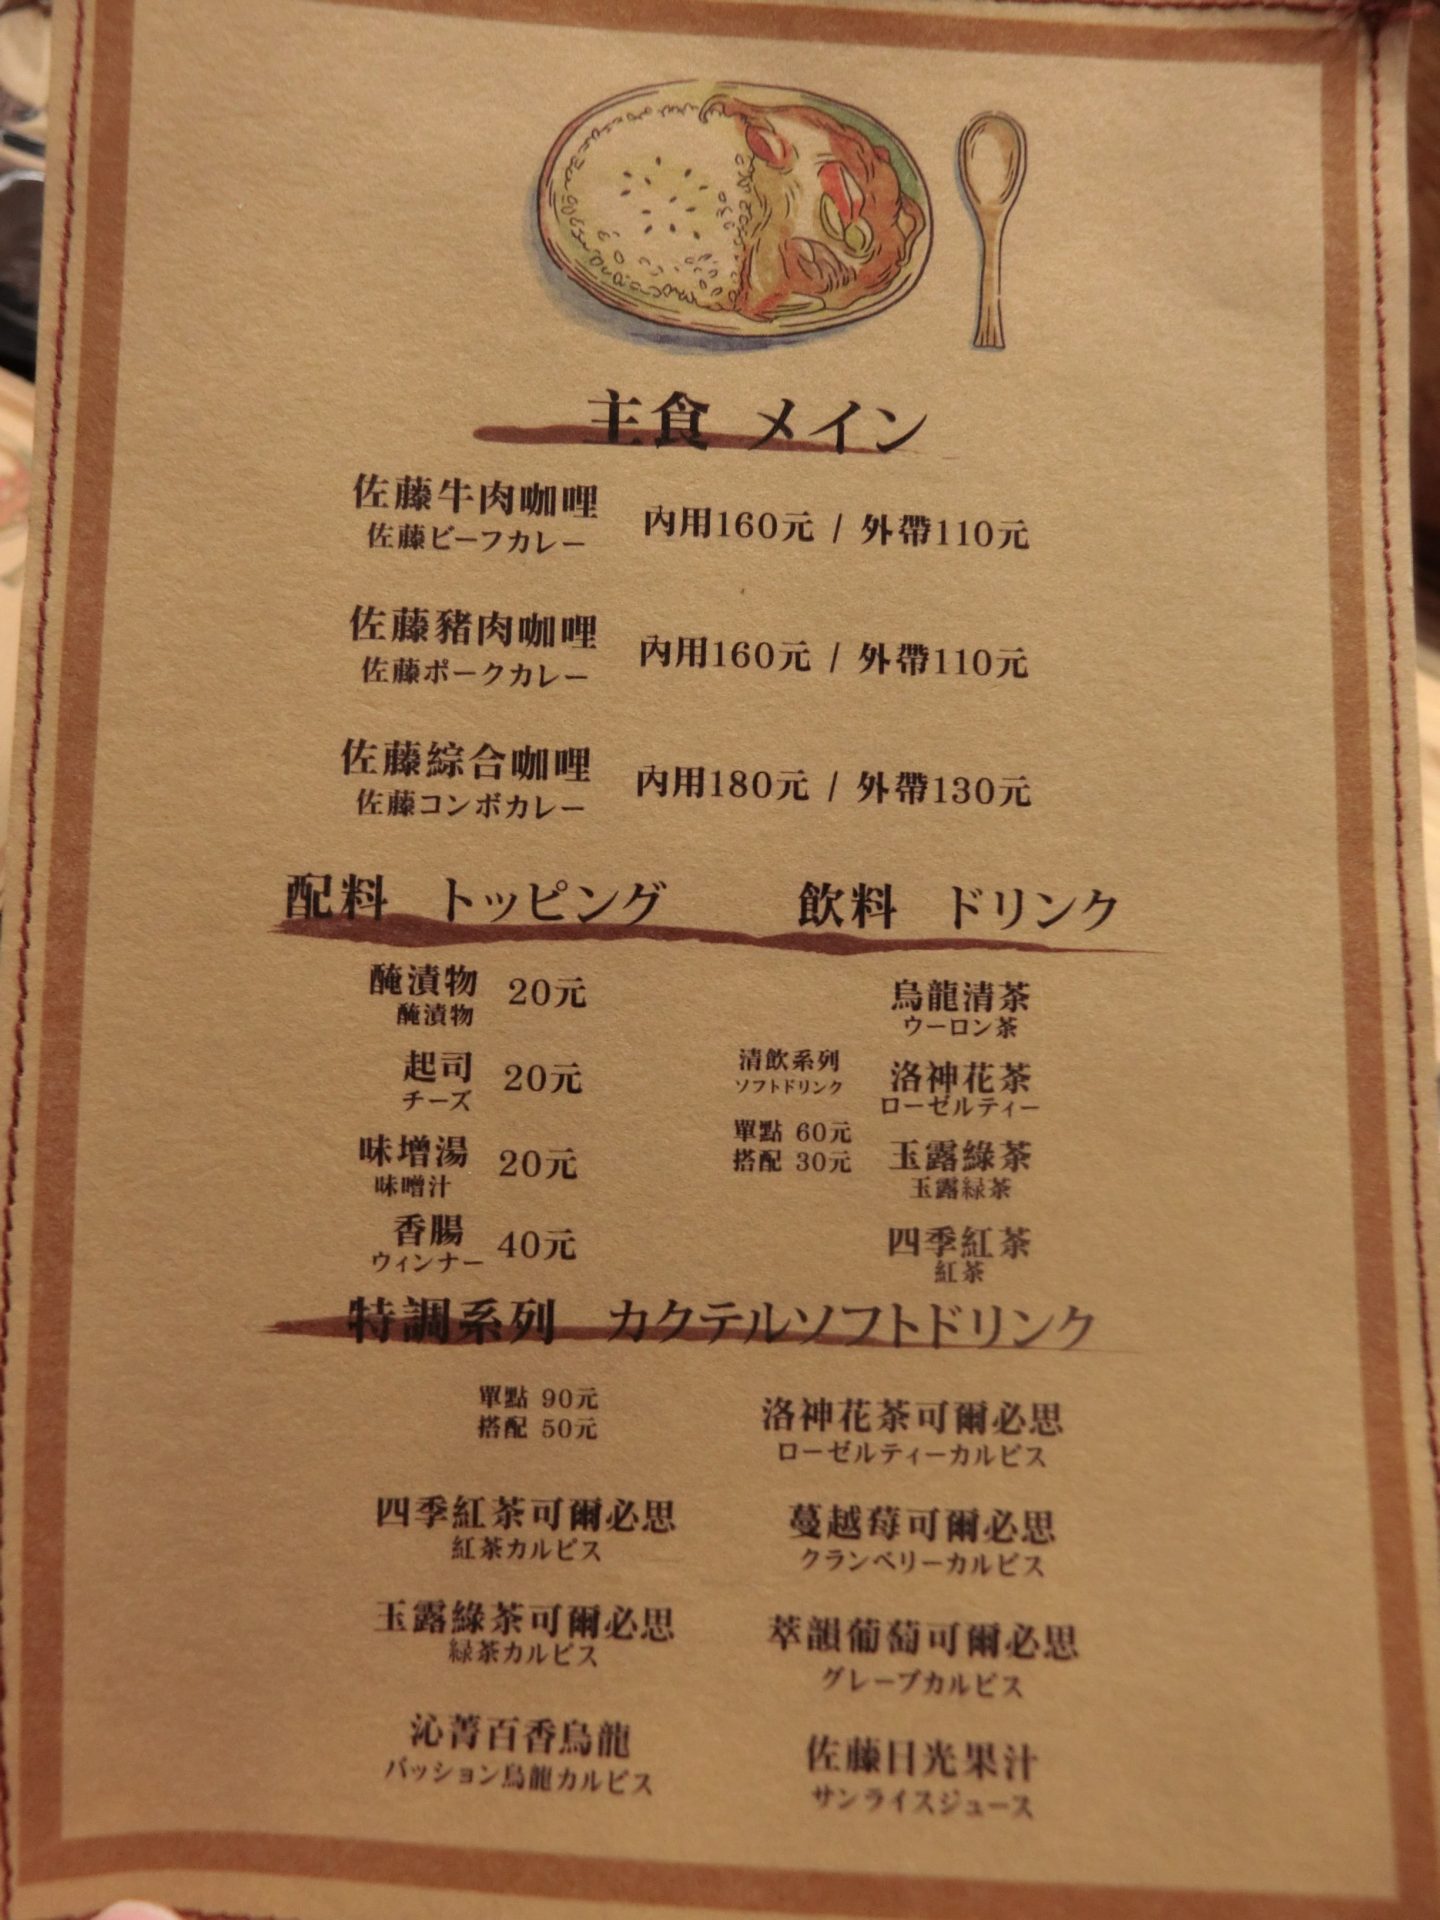 主食 メイン
佐藤牛肉咖哩 內用160元 / 外帶110元
佐藤ビーフカレー
佐藤豬肉咖哩 內用160元 / 外帶110元
佐藤ポークカレー
佐藤綜合咖哩 內用180元 / 外帶130元
佐藤コンボカレー
配料 トッピング
醃漬物 20元
醃漬物
起司 20元
チーズ
味增湯 20元
味噌汁
香腸 40元
ウィンナー
飲料 ドリンク
清飲系列
ソフトドリンク
單點 60元
搭配 30元
烏龍清茶
ウーロン茶
洛神花茶
ローゼルティー
玉露綠茶
玉露緑茶
四季紅茶
紅茶
特調系列 カクテルソフトドリンク
單點 90元
搭配 50元
四季紅茶可爾必思
紅茶カルピス
玉露綠茶可爾必思
緑茶カルピス
沁菁百香烏龍
パッション烏龍カルピス
洛神花茶可爾必思
ローゼルティーカルピス
蔓越莓可爾必思
クランベリーカルピス
萃韻葡萄可爾必思
グレープカルピス
佐藤日光果汁
サンライスジュース